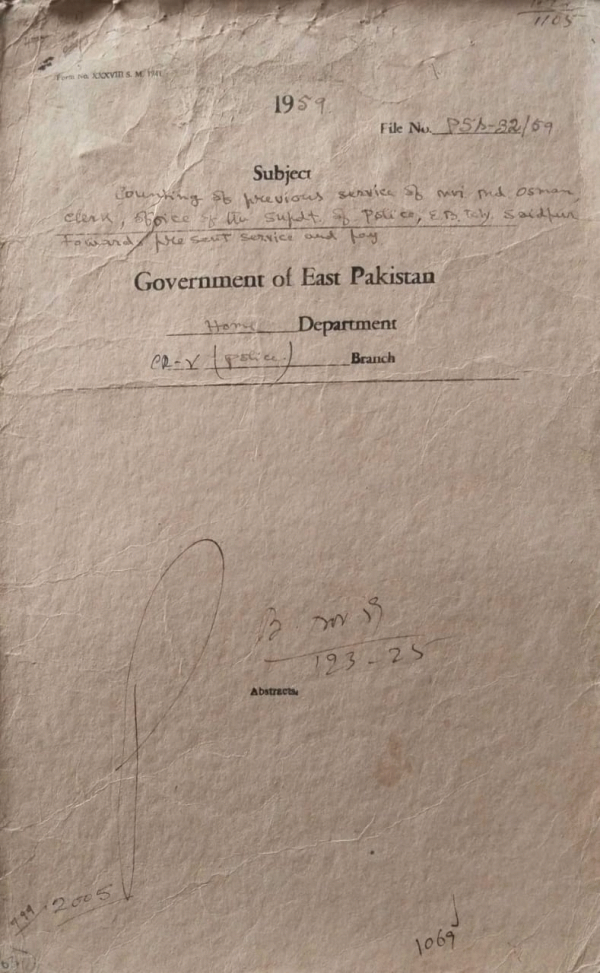 1105
Form No. XXXVIII S. M. 1941
1959
File No. P5A-32/59
Subject
Counting of previous service of mvi md Osman,
Clerk, Office of the Supdt. of Police, E.B. Rly. Saidpur
Towards present service and pay
Government of East Pakistan
Home Department
CR-V (police) Branch
193-25
Abstracts.
2005
1069